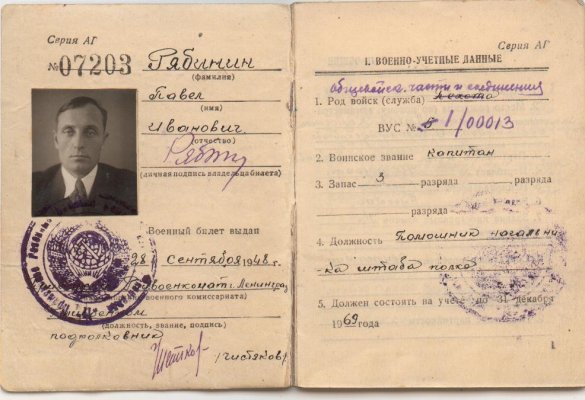 Серия АГ
№ 07203 Рябинин
(фамилия)
Павел
(имя)
Иванович
(отчество)
(личная подпись владельца билета)
Военный билет выдан
28 Сентября 1948 г.
военкомат Ленинград
военного комиссариата)
(должность, звание, подпись)
подполковник
/Чистяков/
Серия АГ
I. ВОЕННО-УЧЕТНЫЕ ДАННЫЕ
общевойск. части и соединения
1. Род войск (служба) пехота
ВУС № 1/00013
2. Воинское звание капитан
3. Запас 3 разряда разряда
разряда
4. Должность Помошник начальни-
-ка штаба полка
5. Должен состоять на учете по 31 декабря
1969 года
1